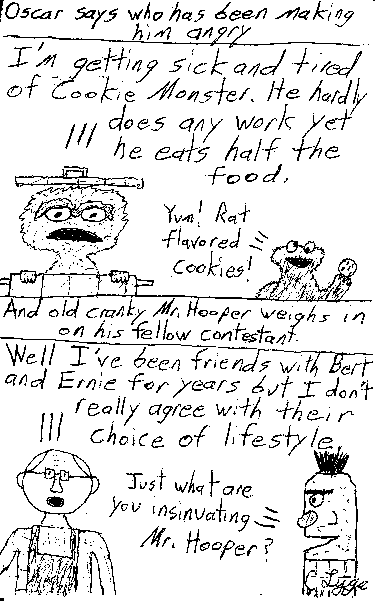 Oscar says who has been making
him angry
I'm getting sick and tired
of Cookie Monster. He hardly
does any work yet
he eats half the
food.
Yum! Rat
flavored
cookies!
And old cranky Mr. Hooper weighs in
on his fellow contestant.
Well I've been friends with Bert
and Ernie for years but I don't
really agree with their
choice of lifestyle.
Just what are
you insinuating
Mr. Hooper?